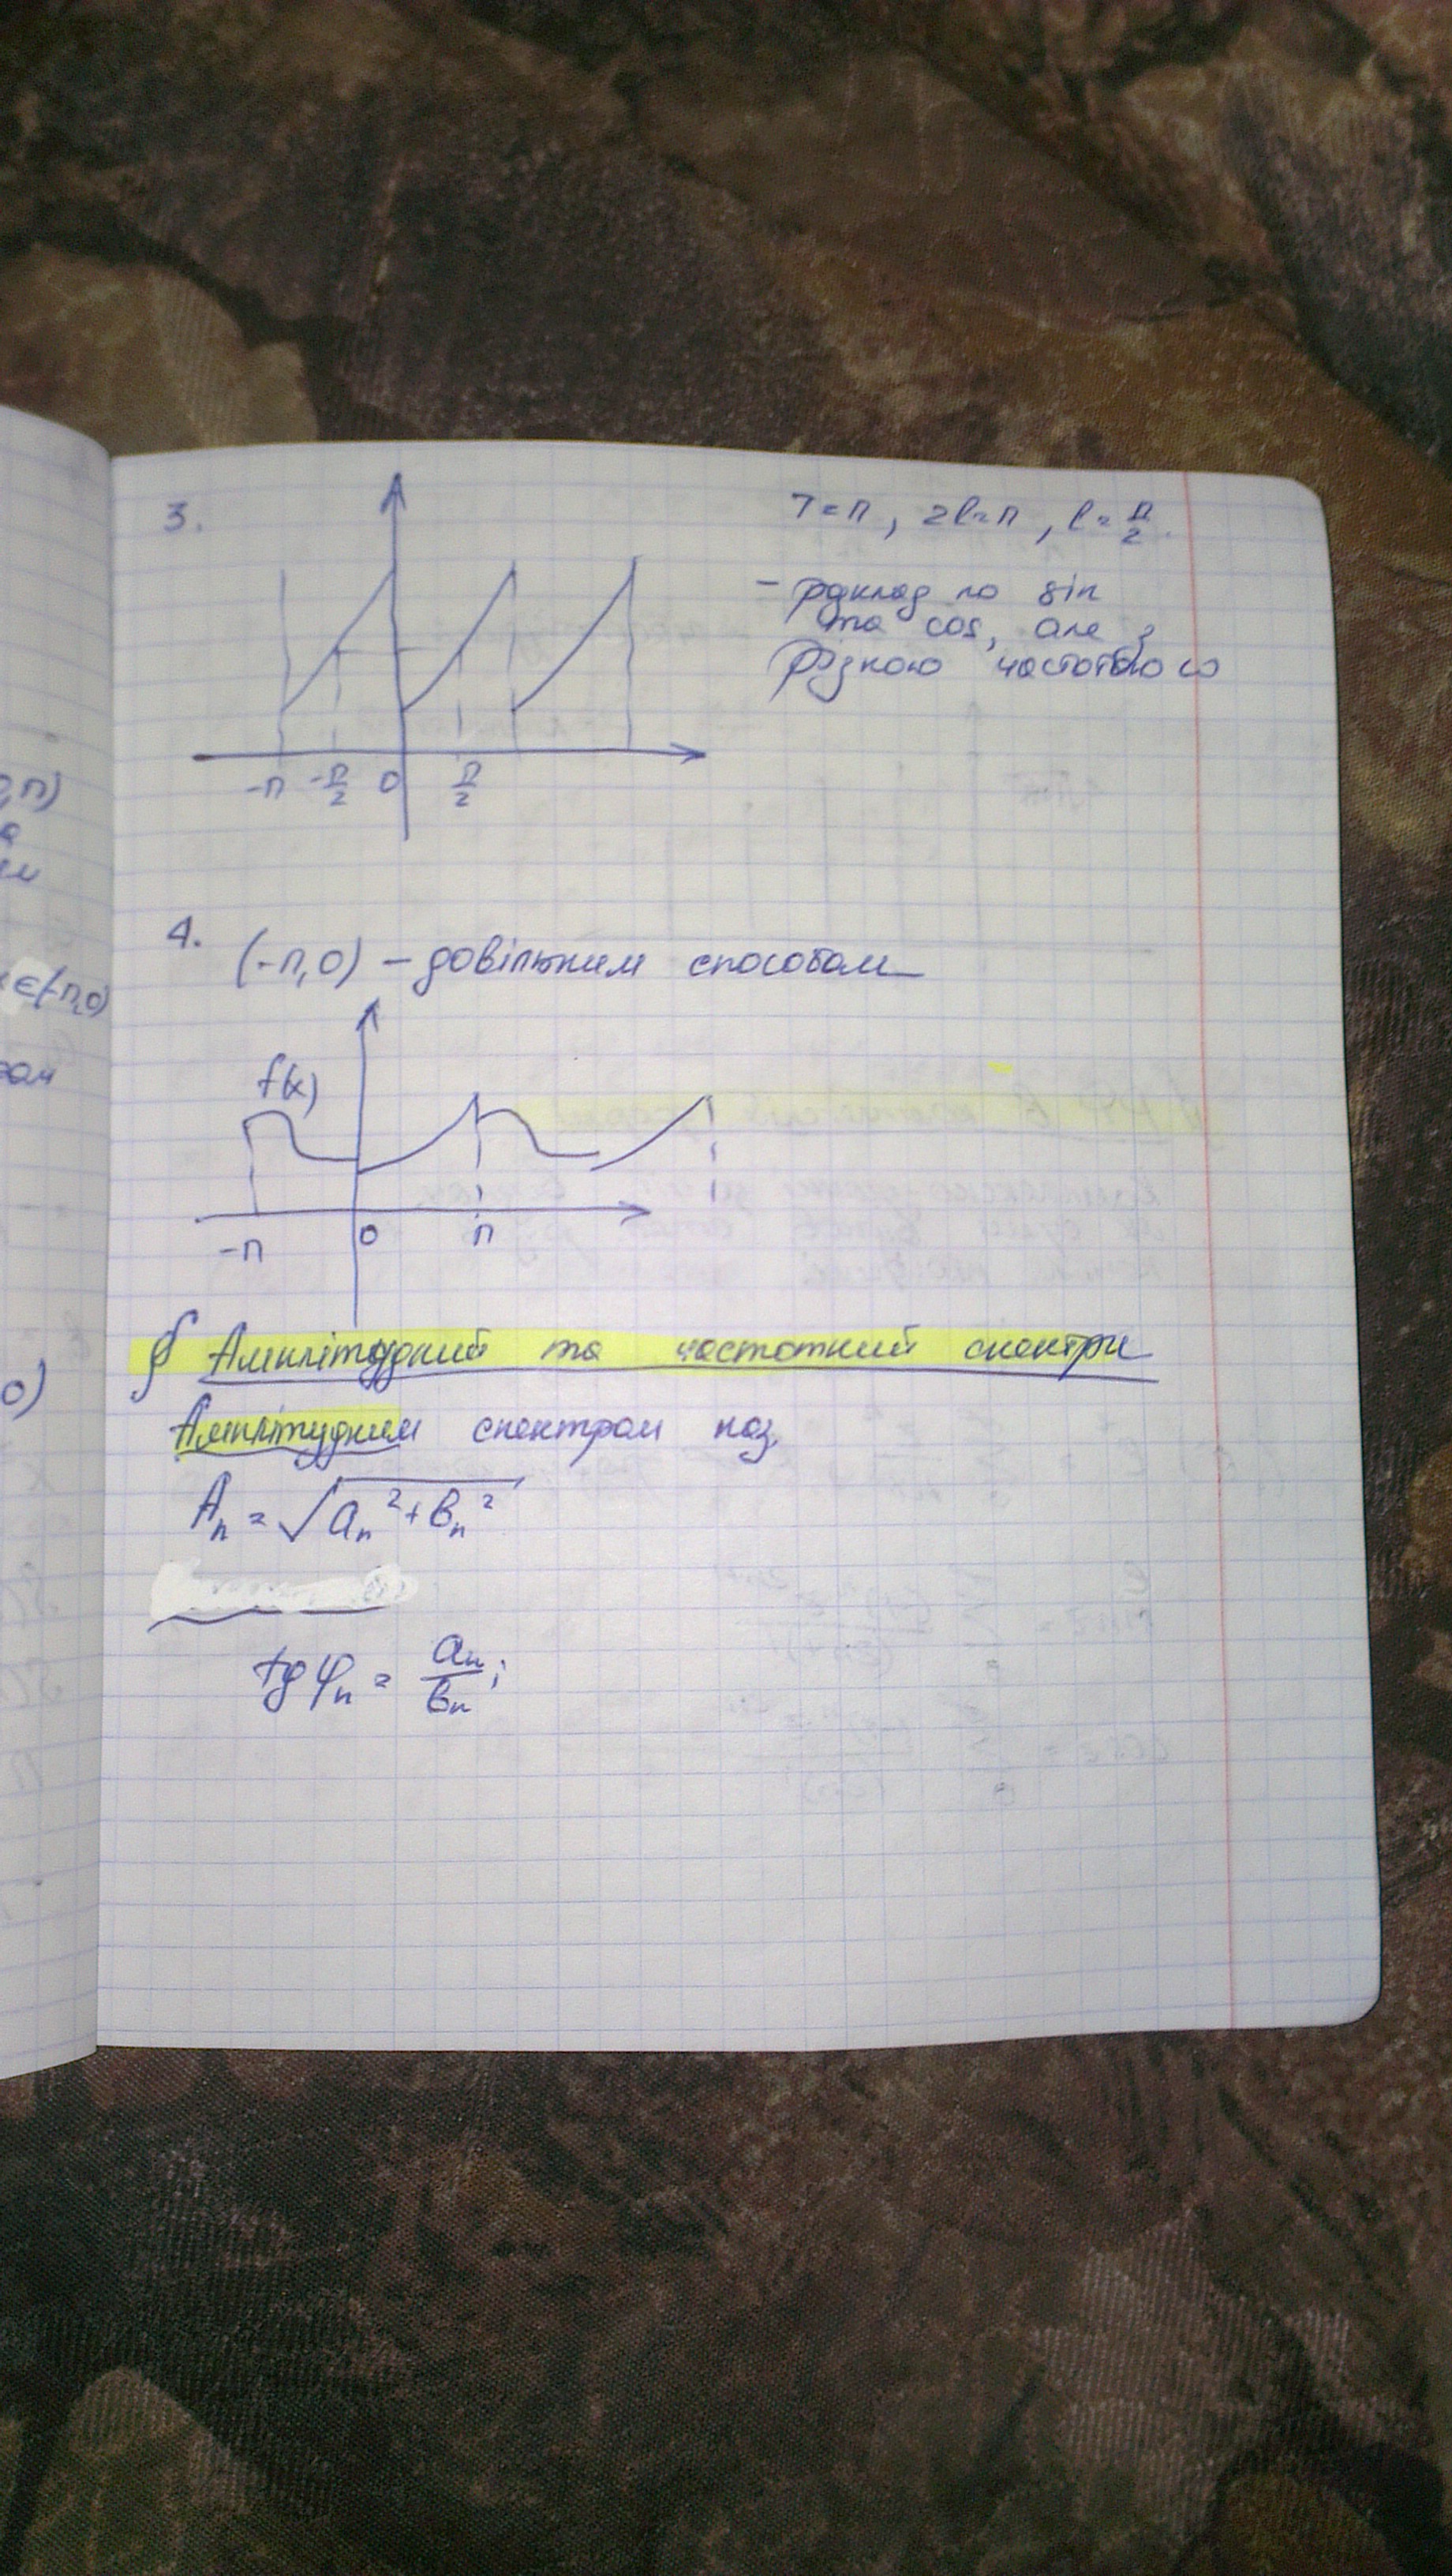 3.
T=π, 2l=π, l=π/2.
- розклад по sin
та cos, але з
різною частотою ω
-π -π/2 0 π/2
4.
(-π,0) - довільним способом
f(x)
-π 0 π
§ Амплітудний та частотний спектри
Амплітудним спектром наз.
Aₙ = √(aₙ²+bₙ²)
tg φₙ = aₙ/bₙ;
,π)
x∈(-π,0)
ом
0)